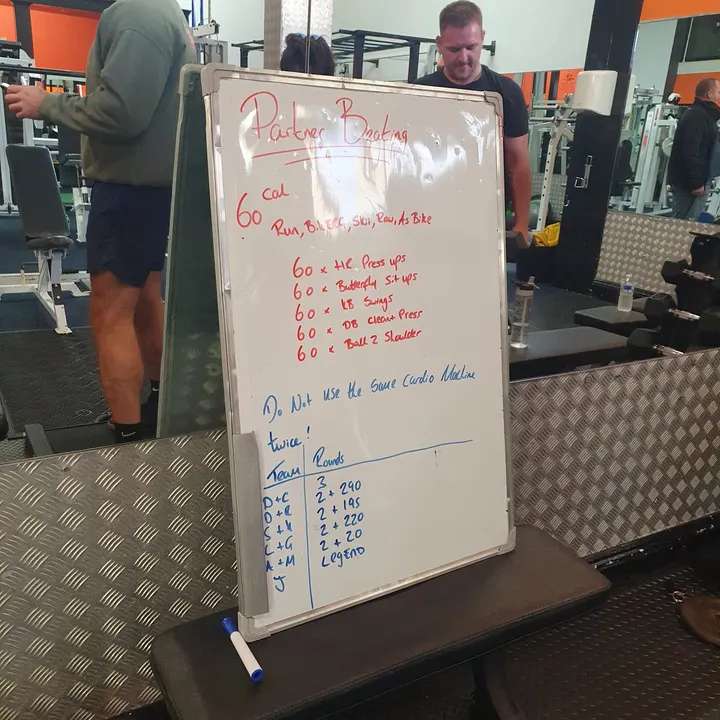 Partner Beating
60 cal
Run, BikeErg, Skii, Row, As Bike
60 x HR Press ups
60 x Butterfly Sit ups
60 x KB Swings
60 x DB Clean + Press
60 x Ball 2 Shoulder
Do Not use the Same Cardio Machine
twice!
Team Rounds
D+C 3
D+R 2 + 290
S+K 2 + 195
L+G 2 + 220
A+M 2 + 20
J Legend